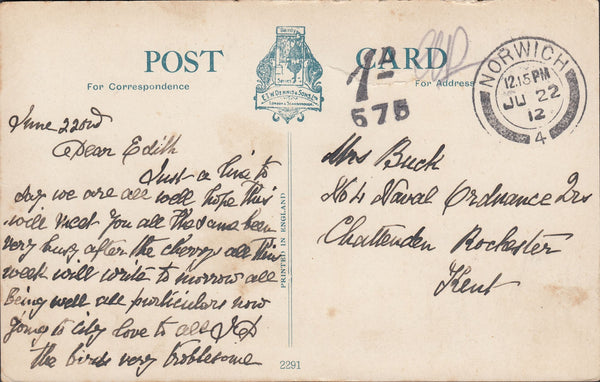 POST CARD
For Correspondence
For Address
E.T.W. DENNIS & SONS LTD
LONDON & SCARBOROUGH
PRINTED IN ENGLAND
2291
1D
575
NORWICH
12.15 PM
JU 22
12
4
June 22nd
Dear Edith
Just a line to
day we are all well hope this
will meet you all the same been
very busy after the cherrys all this
week will write to morrow all
being well all particulars now
going to city love to all
the birds very troblesome
Mrs Buck
No 4 Naval Ordnance Qrs
Chattenden Rochester
Kent